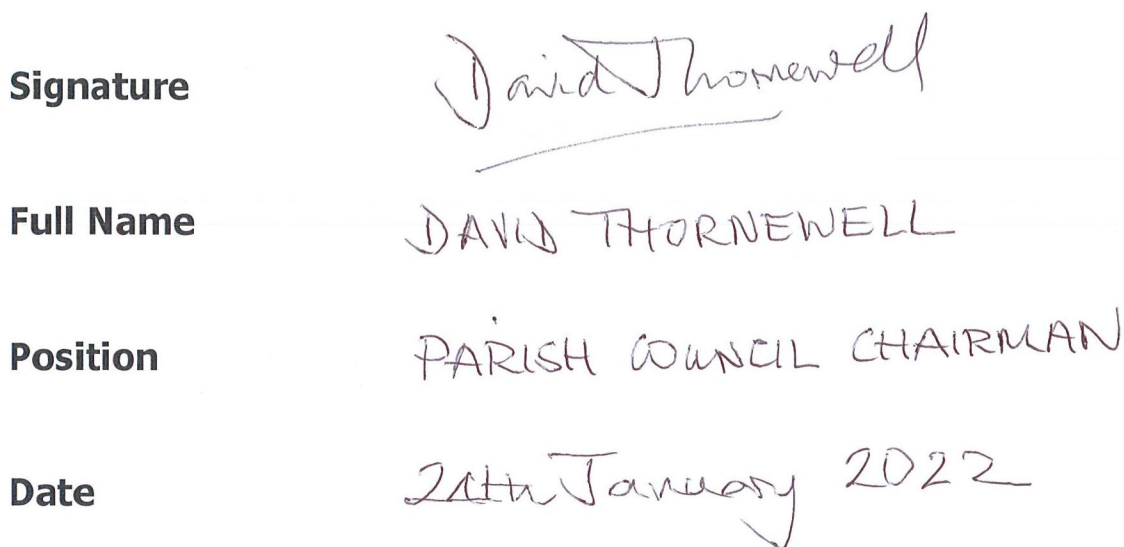 Signature David Thornewell
Full Name DAVID THORNEWELL
Position PARISH COUNCIL CHAIRMAN
Date 24th January 2022